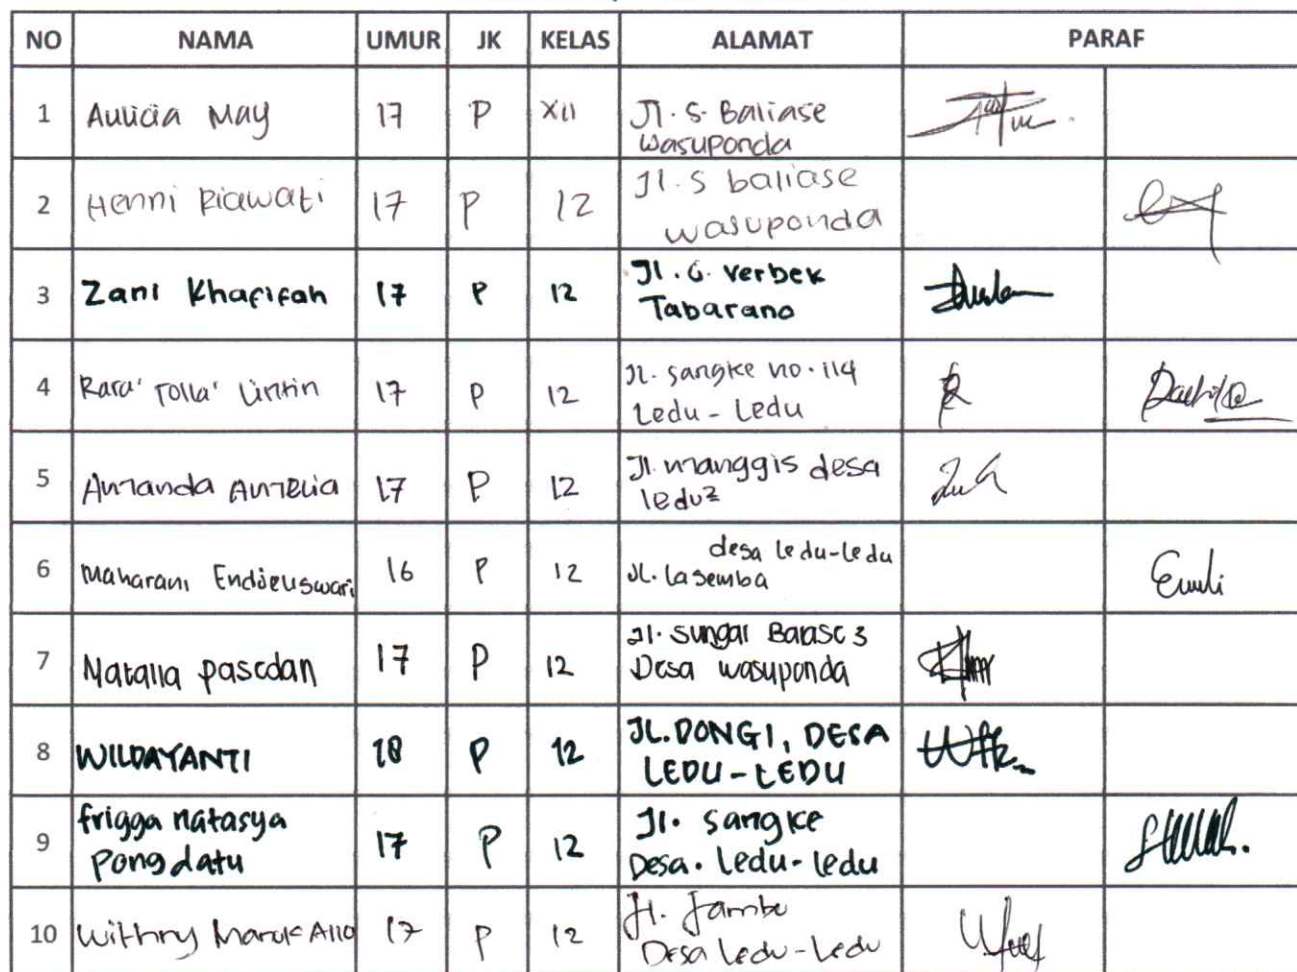 NO NAMA UMUR JK KELAS ALAMAT PARAF
1 Aulicia May 17 P XII Jl. S. Baliase
Wasuponda
2 Henni Riawati 17 P 12 Jl. S baliase
wasuponda
3 Zani Khafifah 17 P 12 Jl. G. Verbek
Tabarano
4 Rara' Tolla' Lintin 17 P 12 Jl. sangke no. 114
Ledu - Ledu
5 Amanda Amelia 17 P 12 Jl. manggis desa
ledu2
6 Maharani 16 P 12 desa ledu-ledu
Jl. Lasemba
7 Natalia pasedan 17 P 12 Jl. Sungai 3
Desa wasuponda
8 WILDAYANTI 18 P 12 JL. DONGI, DESA
LEDU - LEDU
9 frigga natasya
Pongdatu 17 P 12 Jl. sangke
Desa. Ledu-ledu
10 Withny Maruk Allo 17 P 12 Jl. Jambu
Desa Ledu-Ledu